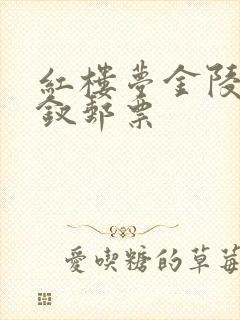 紅樓夢金陵
釵郵票
愛喫糖的草莓